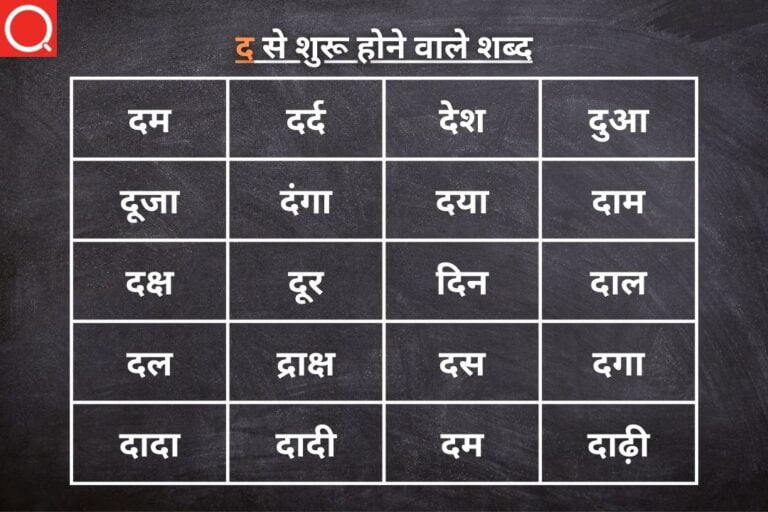 द से शुरू होने वाले शब्द
दम दर्द देश दुआ
दूजा दंगा दया दाम
दक्ष दूर दिन दाल
दल द्राक्ष दस दगा
दादा दादी दम दाढ़ी